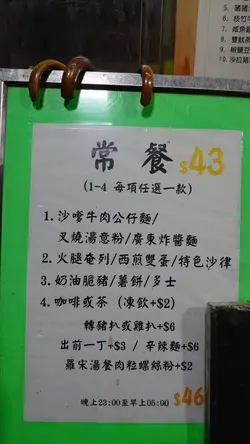 5. 豬豬
6. 枝竹
7. 咸魚
8. 雙
9. 椒鹽豆
10. 沙拉豬
常餐 $43
(1-4 每項任選一款)
1. 沙嗲牛肉公仔麵/
叉燒湯意粉/廣東炸醬麵
2. 火腿奄列/西煎雙蛋/特色沙律
3. 奶油脆豬/薯餅/多士
4. 咖啡或茶 (凍飲+$2)
轉豬扒或雞扒+$6
出前一丁+$3 / 辛辣麵+$6
羅宋湯餐肉粒螺絲粉+$2
$46
晚上23:00至早上05:00